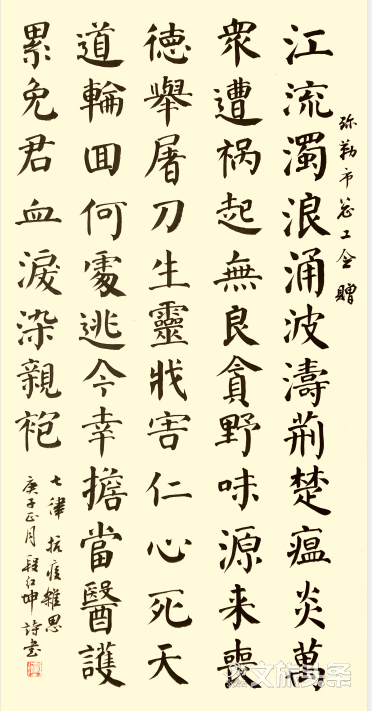 弥勒市总工会贈
江流濁浪涌波濤荆楚瘟炎萬
衆遭祸起無良貪野味源来喪
德舉屠刀生靈戕害仁心死天
道輪囬何處逃今幸擔當醫護
累免君血淚染親袍
七律 抗疫雜思
庚子正月 红坤 诗书
文旅头条